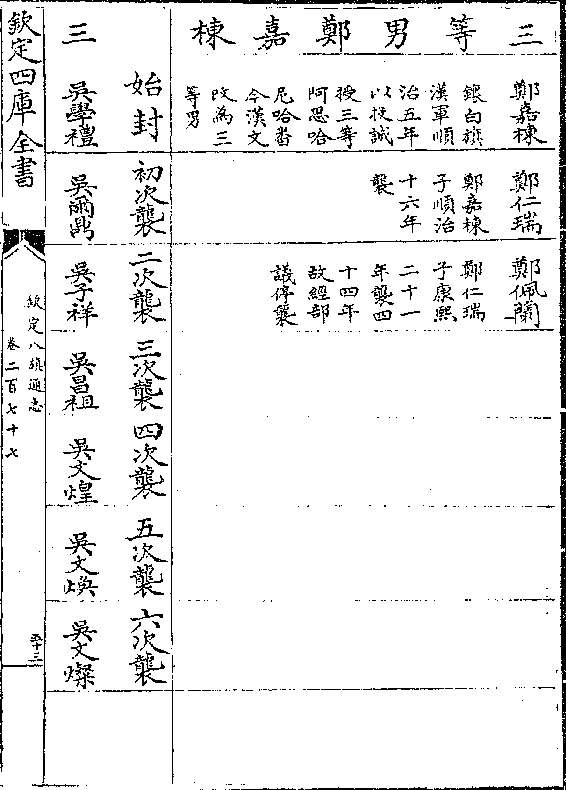 三等男鄭嘉棟
鄭嘉棟
鑲白旗
漢軍順
治五年
以投誠
授三等
阿思哈
尼哈番
今漢文
改為三
等男
鄭仁瑞
鄭嘉棟
子順治
十六年
襲
鄭佩蘭
鄭仁瑞
子康熙
二十一
年襲四
十四年
故經部
議停襲
始封
初次襲
二次襲
三次襲
四次襲
五次襲
六次襲
三
吳學禮
吳
吳子祥
吳昌祖
吳文煌
吳文煥
吳文燦
欽定四庫全書
欽定八旗通志
卷二百七十七
五十三